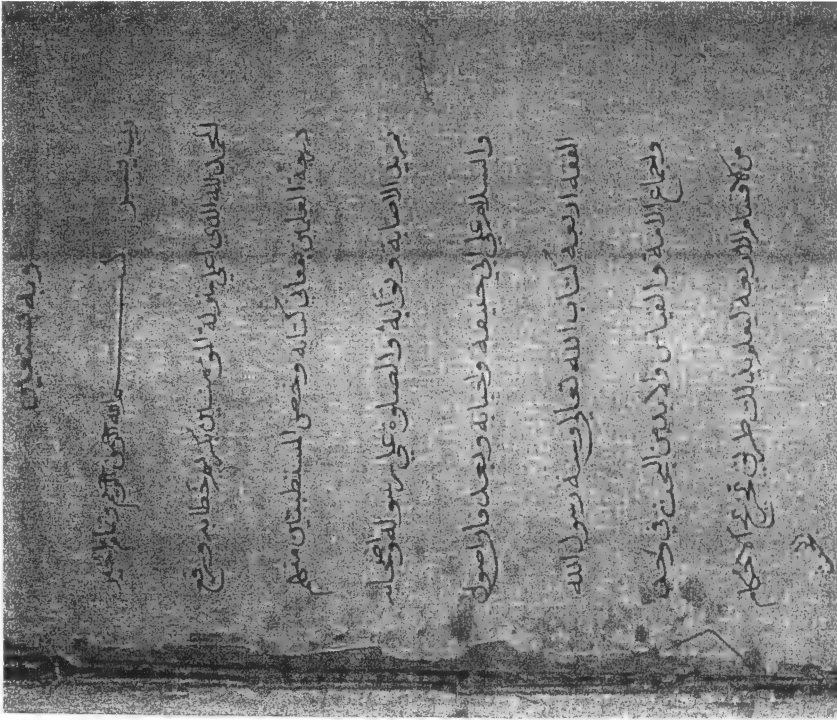 وبه نستعين
رب يسر بسم الله الرحمن الرحيم وتمم بالخير
الحمد لله الذي اعلى منزلة المؤمنين بكريم خطابه ورفع
درجة العالمين بمعاني كتابه وخص المستنبطين منهم
بمزيد الاصابة وثوابه والصلوة على رسوله واصحابه
والسلام على ابي حنيفة واحبابه وبعد فان اصول
الفقه اربعة كتاب الله تعالى وسنة رسول الله
واجماع الامة والقياس ولا بد من البحث في كل واحد
من الاقسام الاربعة ليعلم بذلك طريق تخريج الاحكام